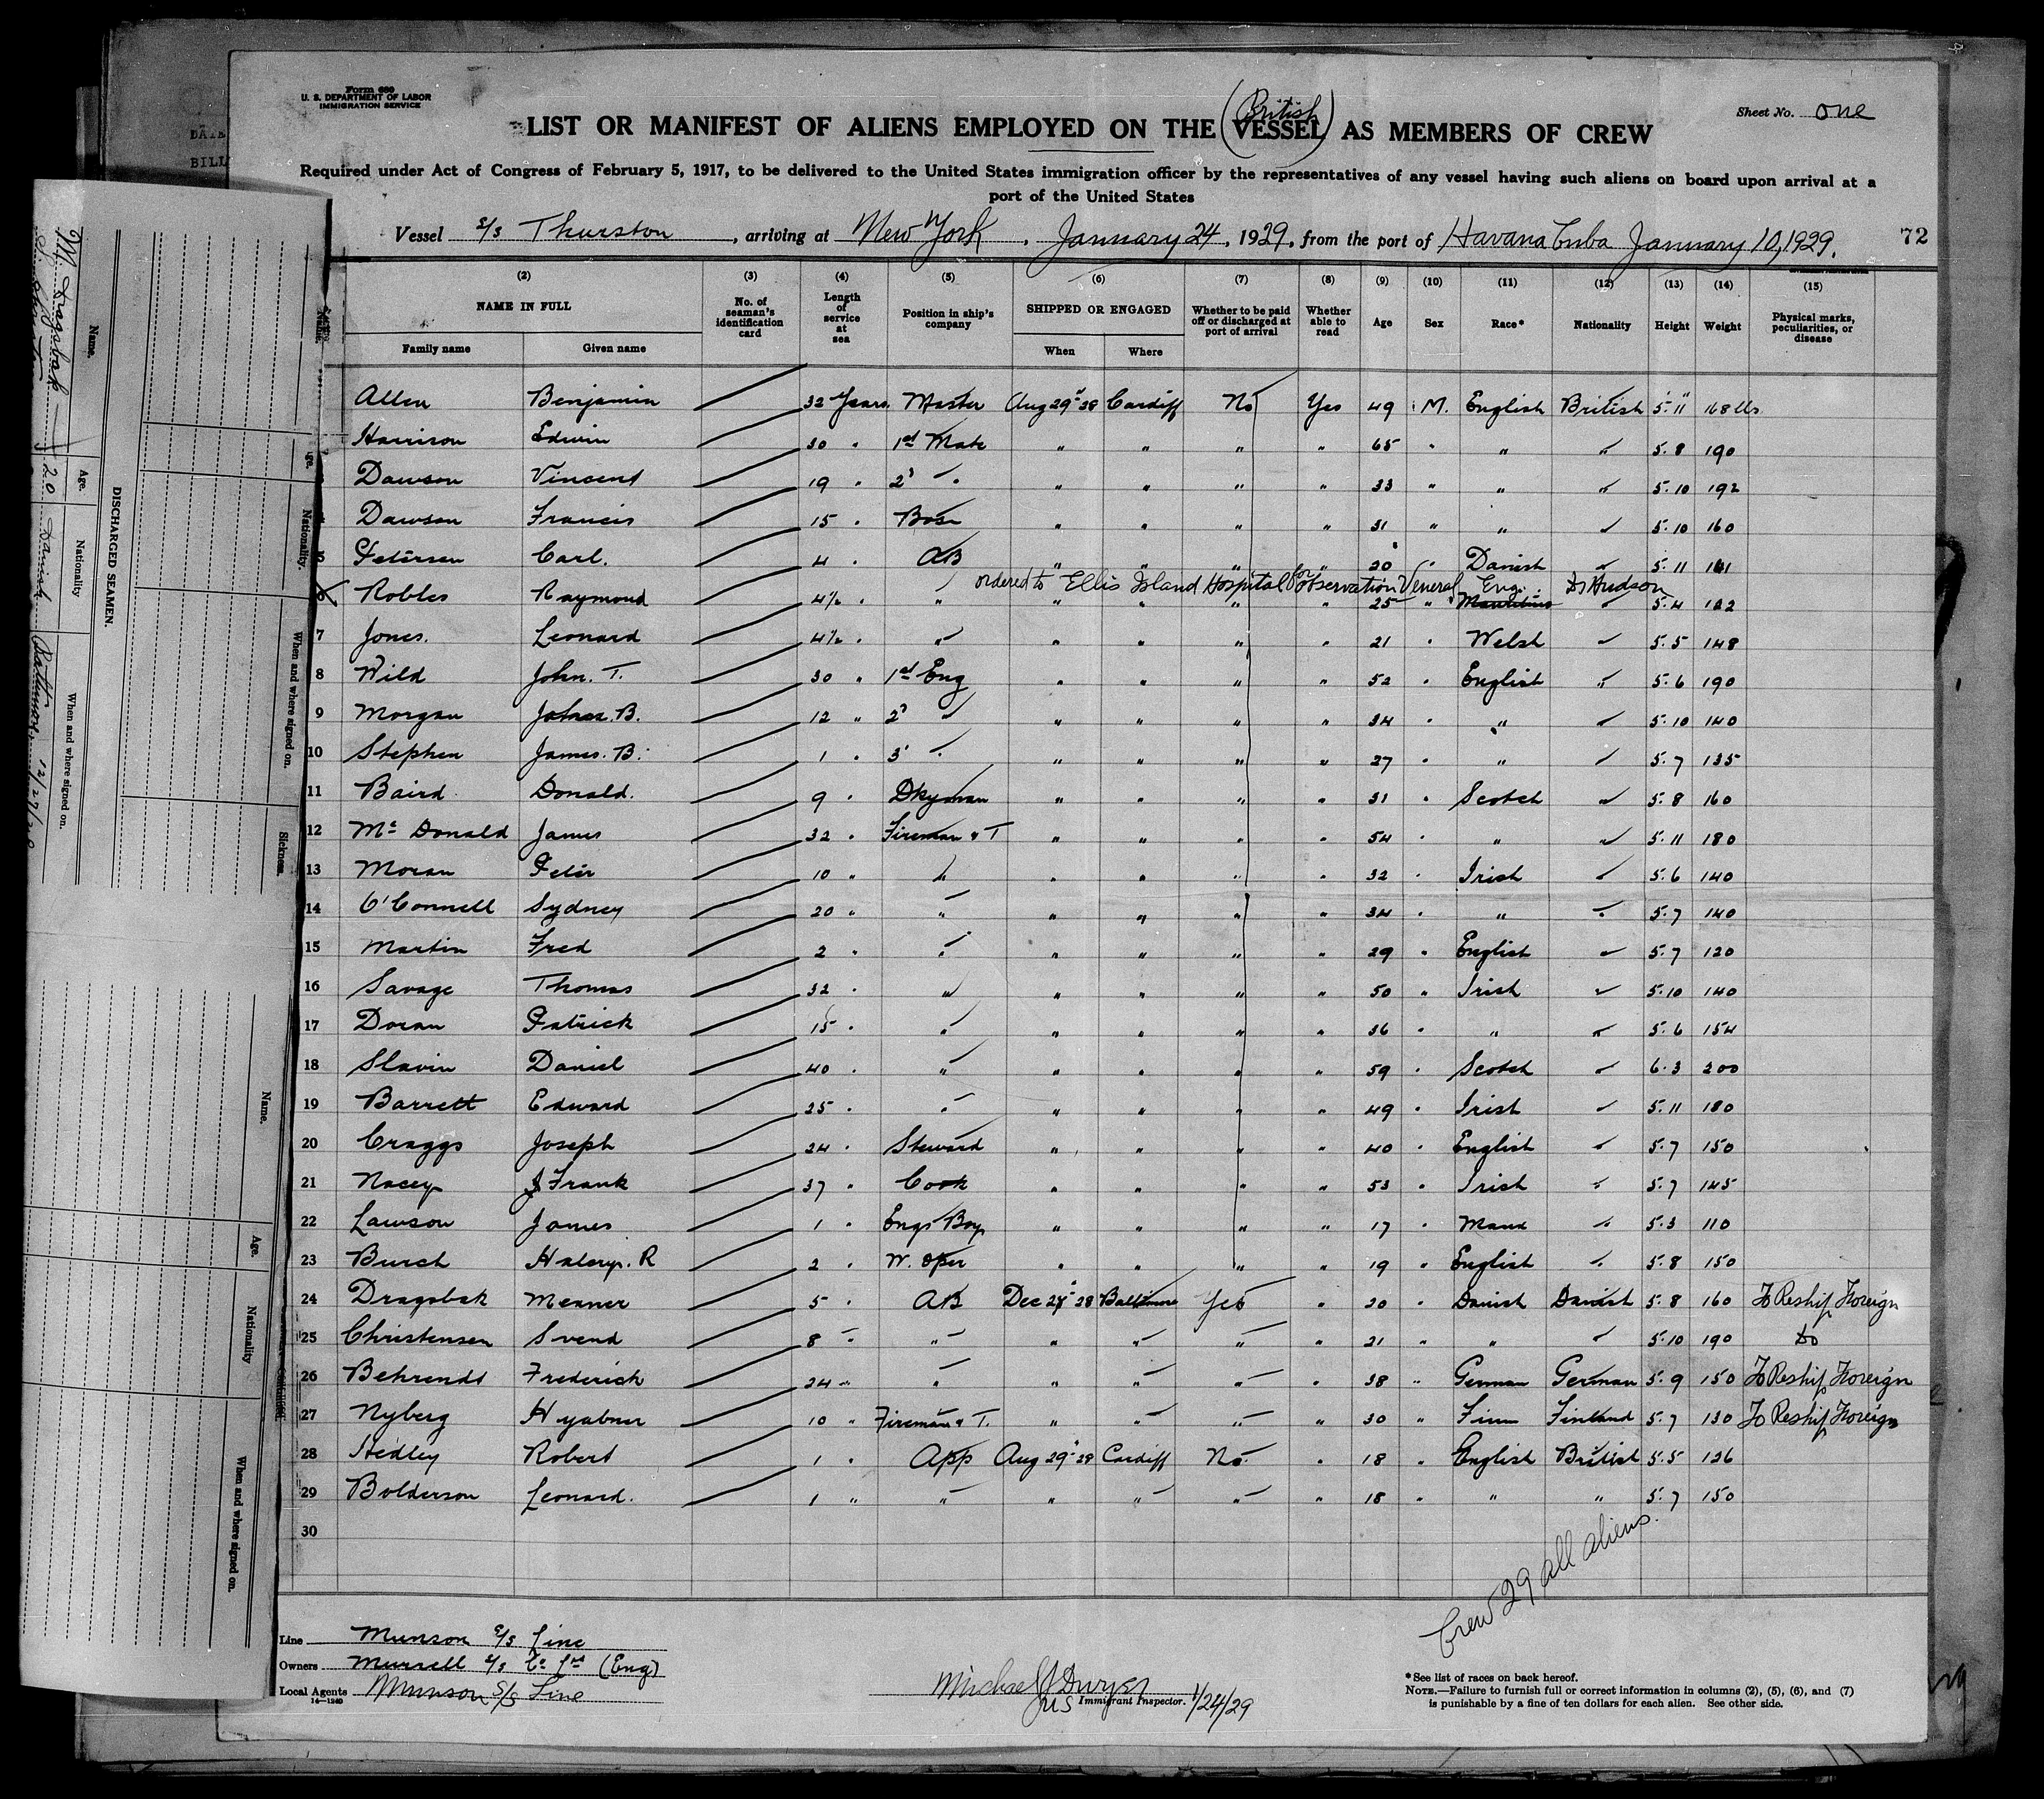 Form 680
U. S. DEPARTMENT OF LABOR
IMMIGRATION SERVICE
Sheet No. One
(British)
LIST OR MANIFEST OF ALIENS EMPLOYED ON THE VESSEL AS MEMBERS OF CREW
Required under Act of Congress of February 5, 1917, to be delivered to the United States immigration officer by the representatives of any vessel having such aliens on board upon arrival at a
port of the United States
Vessel s/s Thurston, arriving at New York, January 24, 1929, from the port of Havana Cuba January 10, 1929. 72
(2) (3) (4) (5) (6) (7) (8) (9) (10) (11) (12) (13) (14) (15)
NAME IN FULL No. of seaman's identification card Length of service at sea Position in ship's company SHIPPED OR ENGAGED Whether to be paid off or discharged at port of arrival Whether able to read Age Sex Race* Nationality Height Weight Physical marks, peculiarities, or disease
Family name Given name When Where
Allen Benjamin 32 Years Master Aug 29" 28 Cardiff No Yes 49 M. English British 5.11 168 lbs
Harrison Edwin 30 " 1st Mate " " " " 65 " " " 5.8 190
3 Dawson Vincent 19 " 2' " " " " " 33 " " " 5.10 192
4 Dawson Francis 15 " Bosn " " " " 31 " " " 5.10 160
5 Petersen Carl. 4 " AB " " " " 20 " Danish " 5.11 161
ordered to Ellis Island Hospital for observation Veneral Eng. Hudson
6 Robles Raymond 4½ " " " " " " 25 " " 5.4 122
7 Jones. Leonard 4½ " " " " " " 21 " Welsh " 5.5 148
8 Wild John. T. 30 " 1st Eng " " " " 52 " English " 5.6 190
9 Morgan B. 12 " 2' " " " " " 34 " " " 5.10 140
10 Stephen James. B. 1 " 3' " " " " " 27 " " " 5.7 135
11 Baird Donald. 9 " Dkyman " " " " 31 " Scotch " 5.8 160
12 Mc Donald James 32 " Fireman & T " " " " 54 " " " 5.11 180
13 Moran Peter 10 " " " " " " 32 " Irish " 5.6 140
14 O'Connell Sydney 20 " " " " " " 34 " " " 5.7 140
15 Martin Fred 2 " " " " " " 29 " English " 5.7 120
16 Savage Thomas 32 " " " " " " 50 " Irish " 5.10 140
17 Doran Patrick 15 " " " " " " 36 " " " 5.6 154
18 Slavin Daniel 40 " " " " " " 59 " Scotch " 6.3 200
19 Barrett Edward 25 " " " " " " 49 " Irish " 5.11 180
20 Craggs Joseph 24 " Steward " " " " 40 " English " 5.7 150
21 Nacey J Frank 37 " Cook " " " " 53 " Irish " 5.7 145
22 Lawson James 1 " Engs Boy " " " " 17 " Manx " 5.3 110
23 Burch R 2 " W. Oper " " " " 19 " English " 5.8 150
24 Dragsbak Menner 5 " AB Dec 28 Baltimore Yes " 20 " Danish Danish 5.8 160 To Reship Foreign
25 Christensen Svend 8 " " " " " " 21 " " " 5.10 190 Do
26 Behrendt Frederich 24 " " " " " " 38 " German German 5.9 150 To Reship Foreign
27 Nyberg Hyabner 10 " Fireman & T. " " " " 30 " Finn Finland 5.7 130 To Reship Foreign
28 Hedley Robert 1 " App Aug 29" 28 Cardiff No " 18 " English British 5.5 126
29 Bolderson Leonard. 1 " " " " " " 18 " " " 5.7 150
30
Crew 29 all aliens.
Line Munson S/S Line
Owners Murrell S/S Co Ltd (Eng)
Local Agents Munson S/S Line
14—1240
Michael J Dwyer
US Immigrant Inspector. 1/24/29
*See list of races on back hereof.
NOTE.—Failure to furnish full or correct information in columns (2), (5), (6), and (7)
is punishable by a fine of ten dollars for each alien. See other side.
DISCHARGED SEAMEN.
Name. Age. Nationality When and where signed on.
M. Dragsbak 20 Danish Baltimore 12/27/28
Age. Nationality. When and where signed on. Sickness.
Name. Age. Nationality When and where signed on.